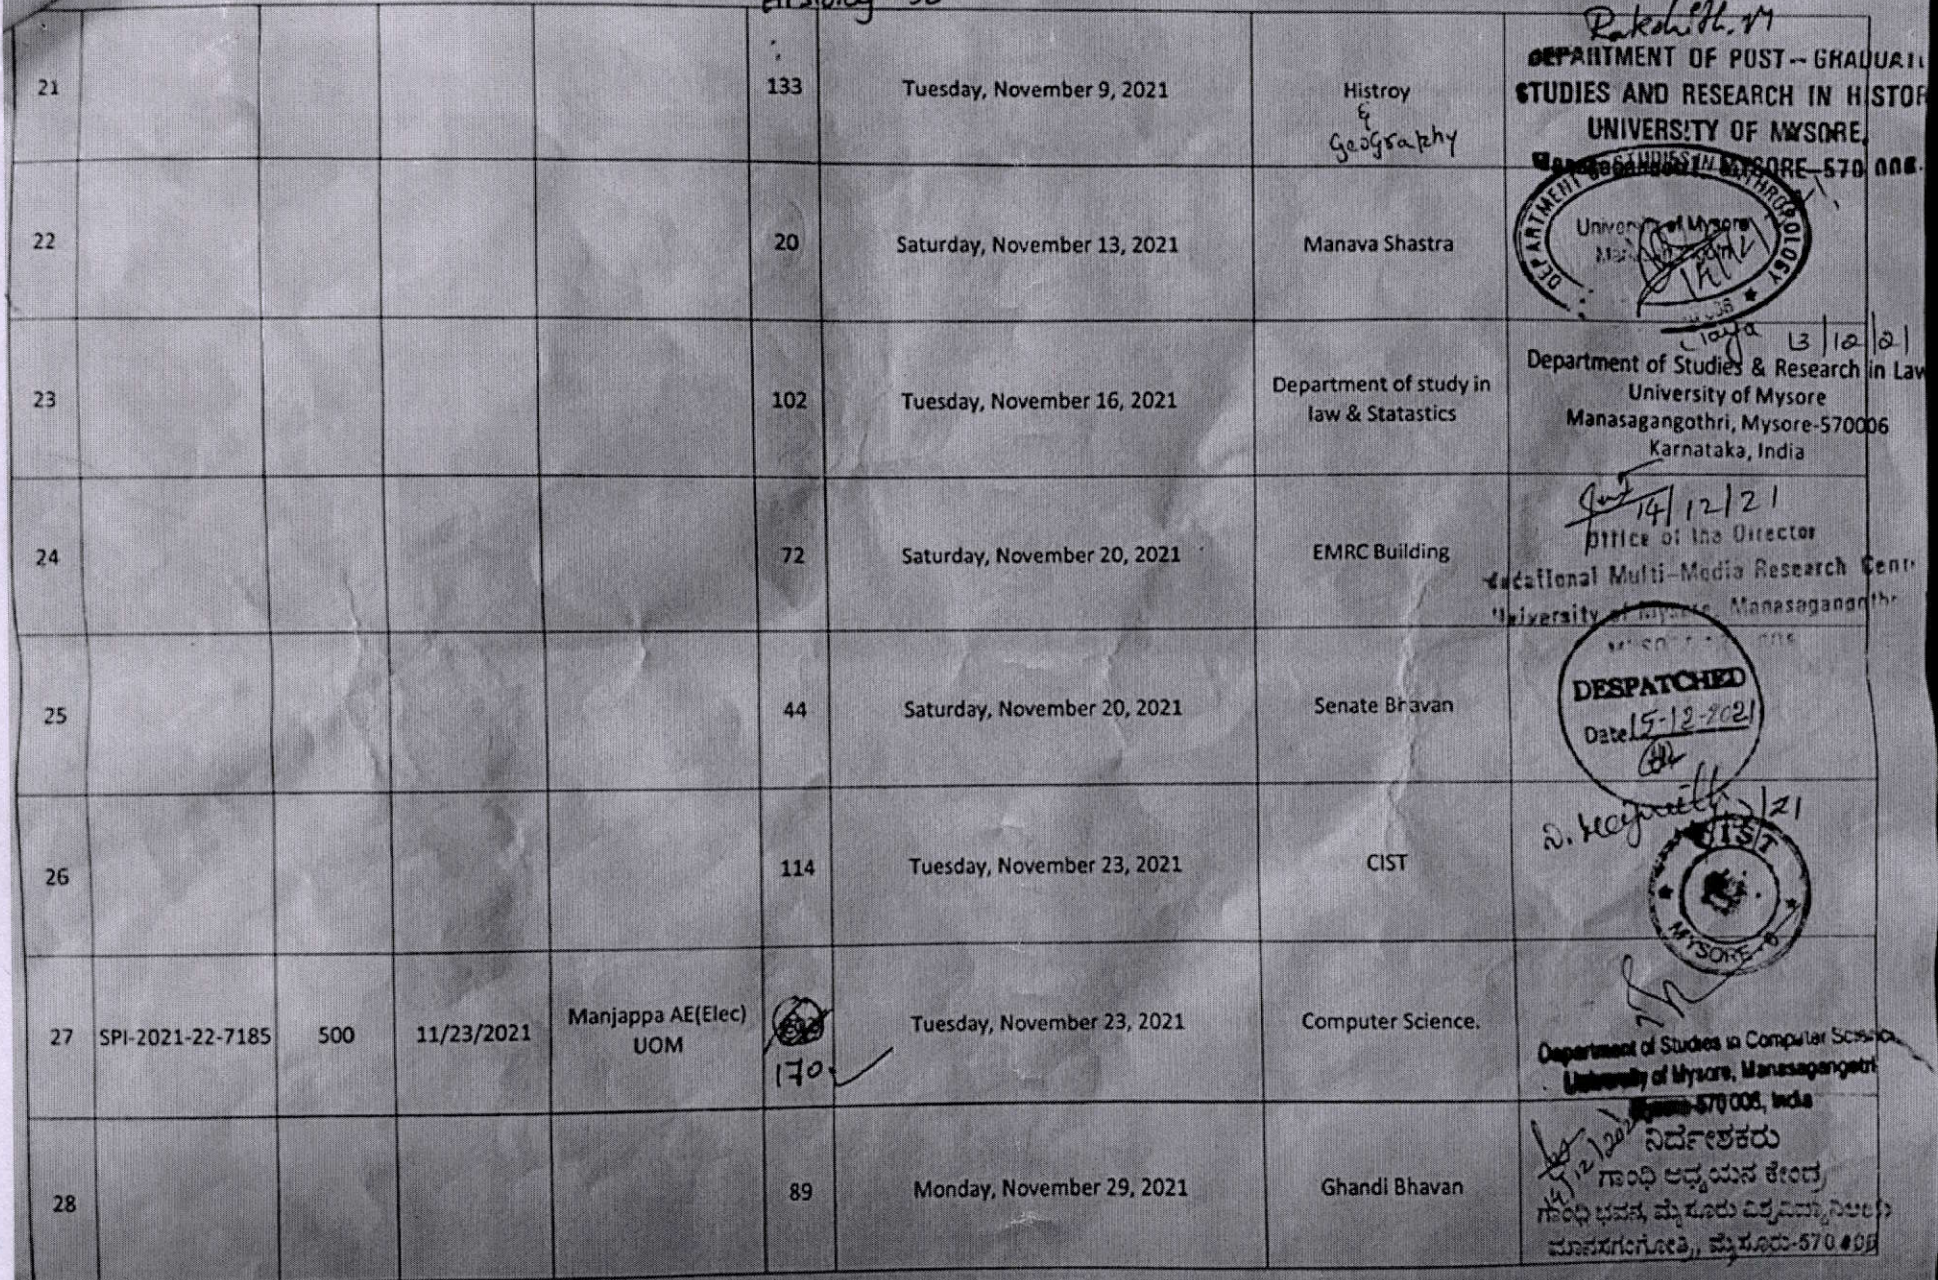 Rakshith. M
DEPARTMENT OF POST-GRADUATE
21 133 Tuesday, November 9, 2021 Histroy
& Geography
STUDIES AND RESEARCH IN HISTOR
UNIVERSITY OF MYSORE,
MYSORE-570 006.
22 20 Saturday, November 13, 2021 Manava Shastra
DEPARTMENT OF STUDIES IN ANTHROPOLOGY
University of Mysore
23 102 Tuesday, November 16, 2021 Department of study in
law & Statastics
13/12/21
Department of Studies & Research in Law
University of Mysore
Manasagangothri, Mysore-570006
Karnataka, India
24 72 Saturday, November 20, 2021 EMRC Building
14/12/21
Office of the Director
Multi-Media Research Cent
University of Mysore, Manasagangothr
25 44 Saturday, November 20, 2021 Senate Bhavan
DESPATCHED
Date 15-12-2021
26 114 Tuesday, November 23, 2021 CIST
CIST
MYSORE-6
27 SPI-2021-22-7185 500 11/23/2021 Manjappa AE(Elec)
UOM
170 Tuesday, November 23, 2021 Computer Science.
Department of Studies in Computer Science
University of Mysore, Manasagangotri
Mysore-570 006, India
28 89 Monday, November 29, 2021 Ghandi Bhavan
ನಿರ್ದೇಶಕರು
ಗಾಂಧಿ ಅಧ್ಯಯನ ಕೇಂದ್ರ,
ಗಾಂಧಿ ಭವನ, ಮೈಸೂರು ವಿಶ್ವವಿದ್ಯಾನಿಲಯ
ಮಾನಸಗಂಗೋತ್ರಿ, ಮೈಸೂರು-570 006